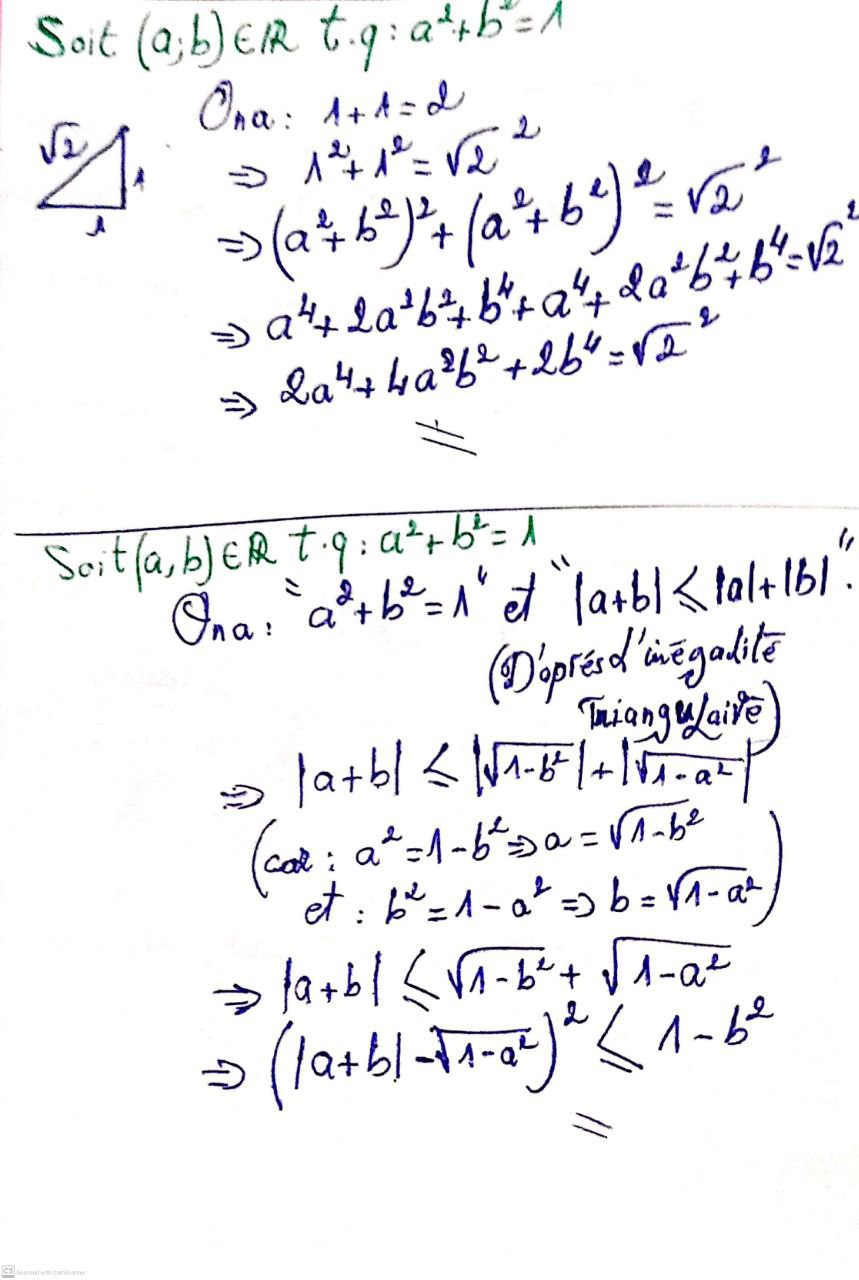 Soit (a;b)∈ℝ t.q: a²+b²=1
Ona: 1+1=2
√2
1
1
⇒ 1²+1²=√2²
⇒(a²+b²)²+(a²+b²)²=√2²
⇒ a⁴+2a²b²+b⁴+a⁴+2a²b²+b⁴=√2²
⇒ 2a⁴+4a²b²+2b⁴=√2²
Soit(a,b)∈ℝ t.q: a²+b²=1
Ona: "a²+b²=1" et "|a+b|≤|a|+|b|".
(D'aprés d'inégalité
Triangulaire)
⇒ |a+b| ≤ |√1-b²|+|√1-a²|
(car: a²=1-b²⇒a=√1-b²
et: b²=1-a² ⇒ b=√1-a²)
⇒ |a+b| ≤√1-b²+ √1-a²
⇒ (|a+b|-√1-a²)² ≤ 1-b²
CS Scanned with CamScanner